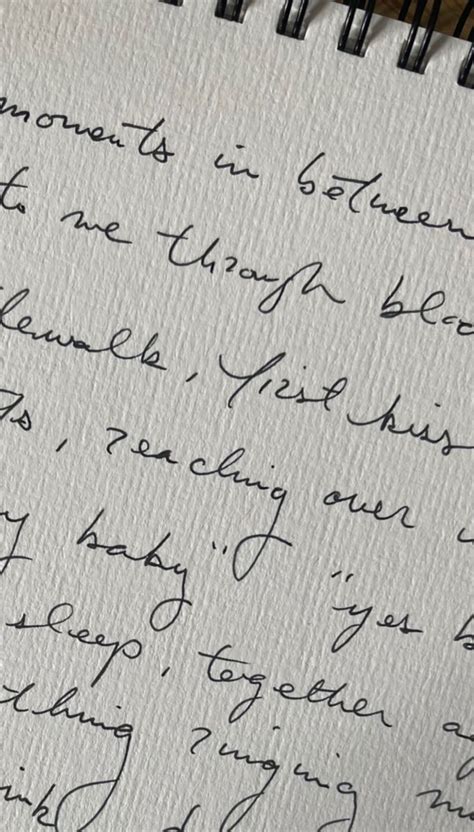 moments in between
to me through blac
lewalk, first kiss
ts, reaching over
y baby" "yes b
sleep, together ag
thing ringing m
ink